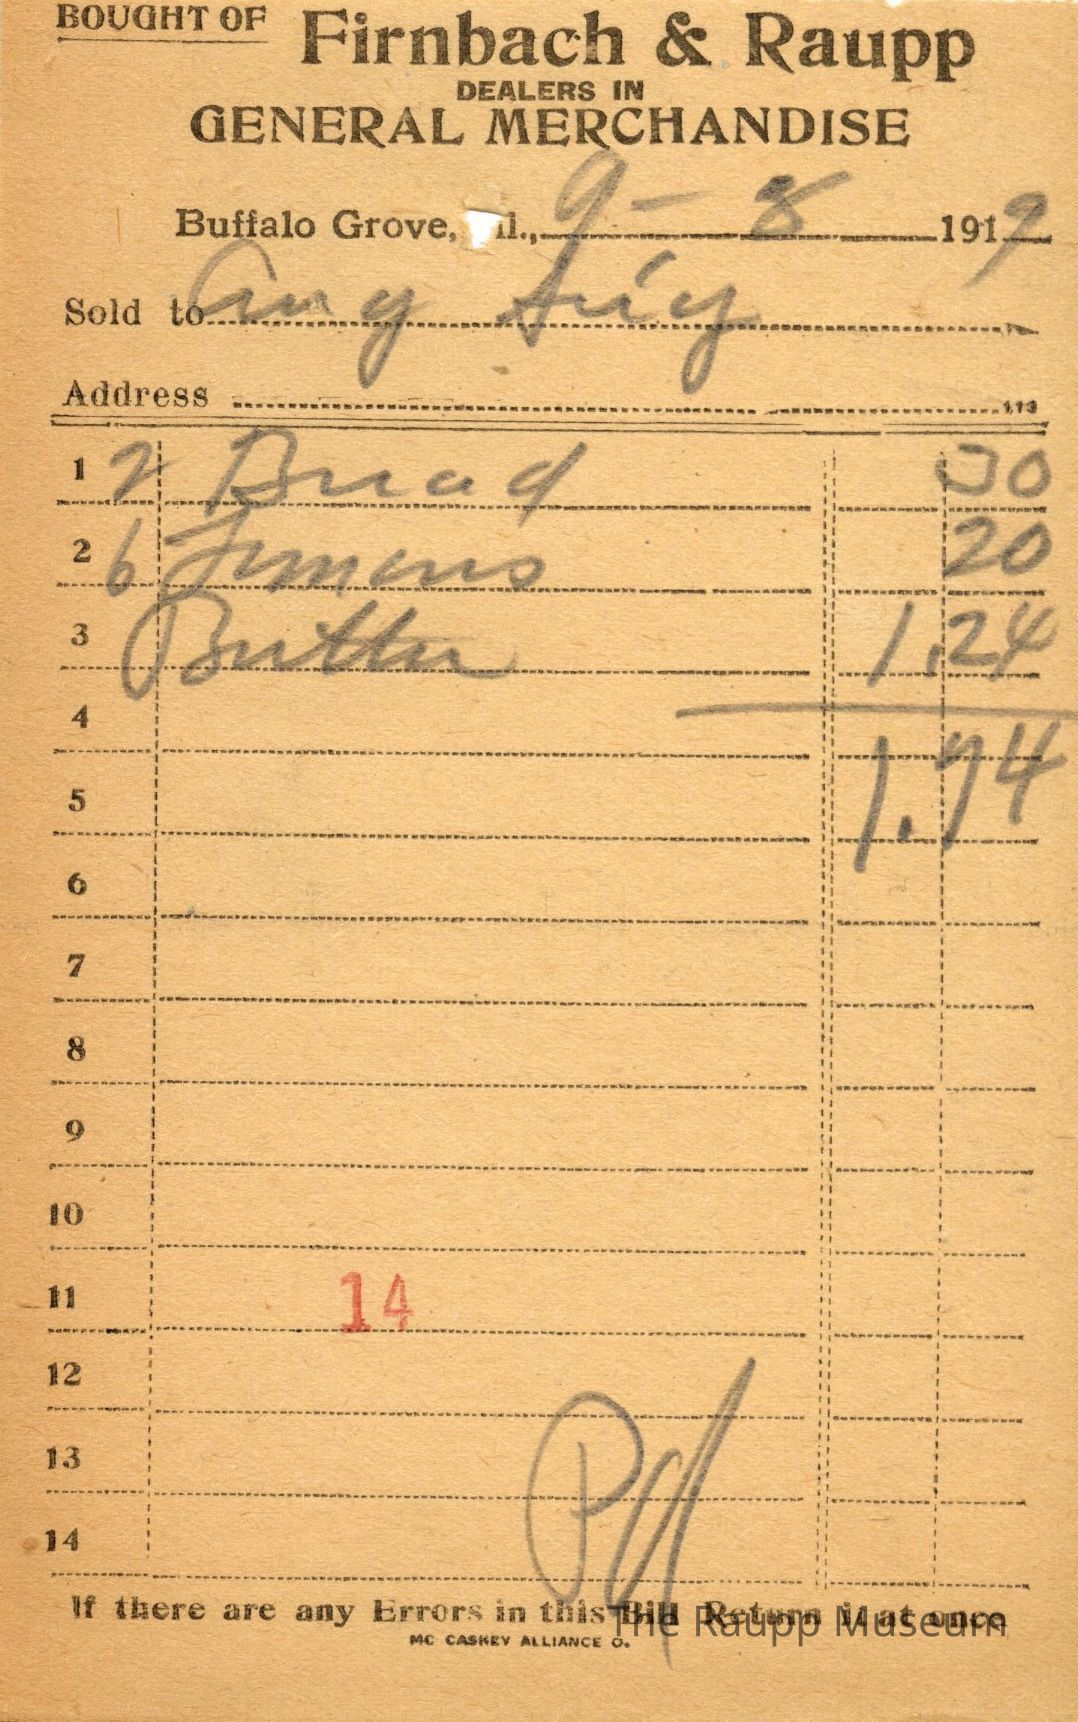 BOUGHT OF Firnbach & Raupp
DEALERS IN
GENERAL MERCHANDISE
Buffalo Grove, Ill., 9 - 8 1919
Sold to
Address
113
1 2 Bread 30
2 6 Lemons 20
3 Butter 1.24
4
1.74
5
6
7
8
9
10
11 14
12
13
14
Pd
If there are any Errors in this Bill Return it at once
MC CASKEY ALLIANCE O.
The Raupp Museum